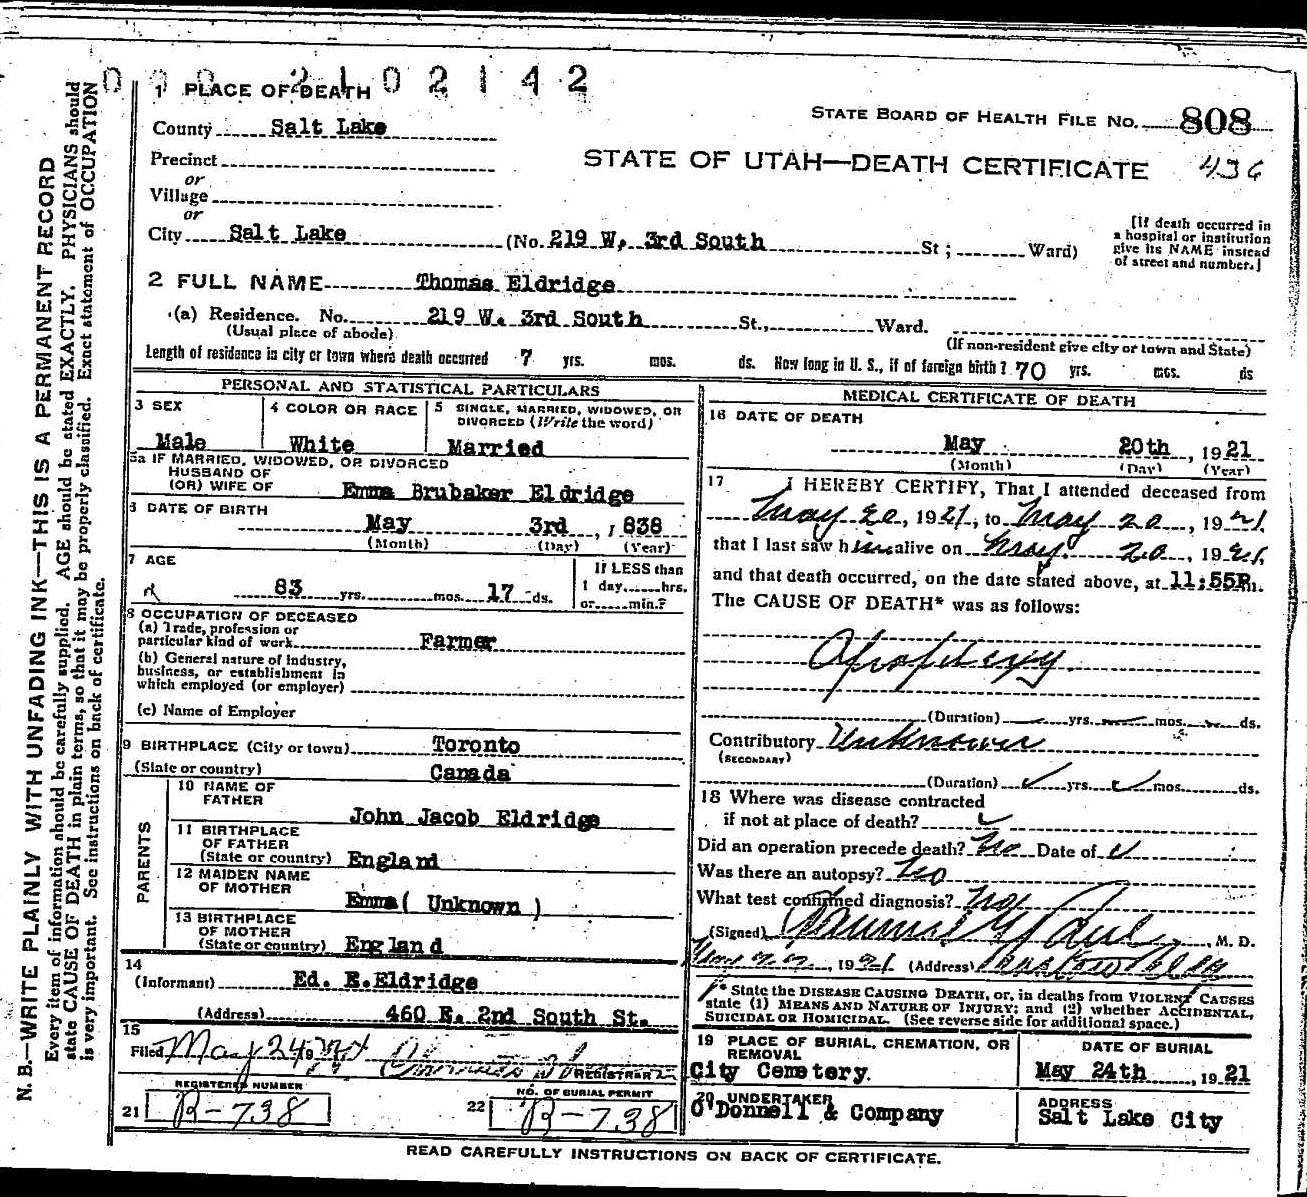 2102142
1 PLACE OF DEATH
STATE BOARD OF HEALTH FILE NO. 808
County Salt Lake
STATE OF UTAH—DEATH CERTIFICATE 436
Precinct
or
Village
or
City Salt Lake (No. 219 W. 3rd South St; Ward)
[If death occurred in
a hospital or institution
give its NAME instead
of street and number.]
2 FULL NAME Thomas Eldridge
(a) Residence. No. 219 W. 3rd South St., Ward.
(Usual place of abode)
(If non-resident give city or town and State)
Length of residence in city or town where death occurred 7 yrs. mos. ds. How long in U. S., if of foreign birth? 70 yrs. mos. ds
PERSONAL AND STATISTICAL PARTICULARS
3 SEX
Male
4 COLOR OR RACE
White
5 SINGLE, MARRIED, WIDOWED, OR
DIVORCED (Write the word)
Married
5a IF MARRIED, WIDOWED, OR DIVORCED
HUSBAND OF
(OR) WIFE OF Emma Brubaker Eldridge
6 DATE OF BIRTH
May 3rd, 1838
(Month) (Day) (Year)
7 AGE
83 yrs. mos. 17 ds.
If LESS than
1 day hrs.
or min.?
8 OCCUPATION OF DECEASED
(a) Trade, profession or
particular kind of work Farmer
(b) General nature of industry,
business, or establishment in
which employed (or employer)
(c) Name of Employer
9 BIRTHPLACE (City or town) Toronto
(State or country) Canada
PARENTS
10 NAME OF
FATHER
John Jacob Eldridge
11 BIRTHPLACE
OF FATHER
(State or country) England
12 MAIDEN NAME
OF MOTHER
Emma ( Unknown )
13 BIRTHPLACE
OF MOTHER
(State or country) England
14
(Informant) Ed. E. Eldridge
(Address) 460 E. 2nd South St.
15
Filed May 24, 19
REGISTRAR
REGISTERED NUMBER
21 B-738
NO. OF BURIAL PERMIT
22 B-738
MEDICAL CERTIFICATE OF DEATH
16 DATE OF DEATH
May 20th, 1921
(Month) (Day) (Year)
17 I HEREBY CERTIFY, That I attended deceased from
May 20, 1921, to May 20, 1921
that I last saw him alive on May 20, 1921,
and that death occurred, on the date stated above, at 11:55P.m.
The CAUSE OF DEATH* was as follows:
Apoplexy
(Duration) yrs. mos. ds.
Contributory Unknown
(SECONDARY)
(Duration) yrs. mos. ds.
18 Where was disease contracted
if not at place of death?
Did an operation precede death? No Date of
Was there an autopsy? No
What test confirmed diagnosis? No
(Signed) , M. D.
, 1921 (Address)
* State the DISEASE CAUSING DEATH, or, in deaths from VIOLENT CAUSES
state (1) MEANS AND NATURE OF INJURY; and (2) whether ACCIDENTAL,
SUICIDAL OR HOMICIDAL. (See reverse side for additional space.)
19 PLACE OF BURIAL, CREMATION, OR
REMOVAL
City Cemetery.
DATE OF BURIAL
May 24th, 1921
20 UNDERTAKER
O'Donnell & Company
ADDRESS
Salt Lake City
READ CAREFULLY INSTRUCTIONS ON BACK OF CERTIFICATE.
N. B.—WRITE PLAINLY WITH UNFADING INK—THIS IS A PERMANENT RECORD
Every item of information should be carefully supplied. AGE should be stated EXACTLY. PHYSICIANS should
state CAUSE OF DEATH in plain terms, so that it may be properly classified. Exact statement of OCCUPATION
is very important. See instructions on back of certificate.